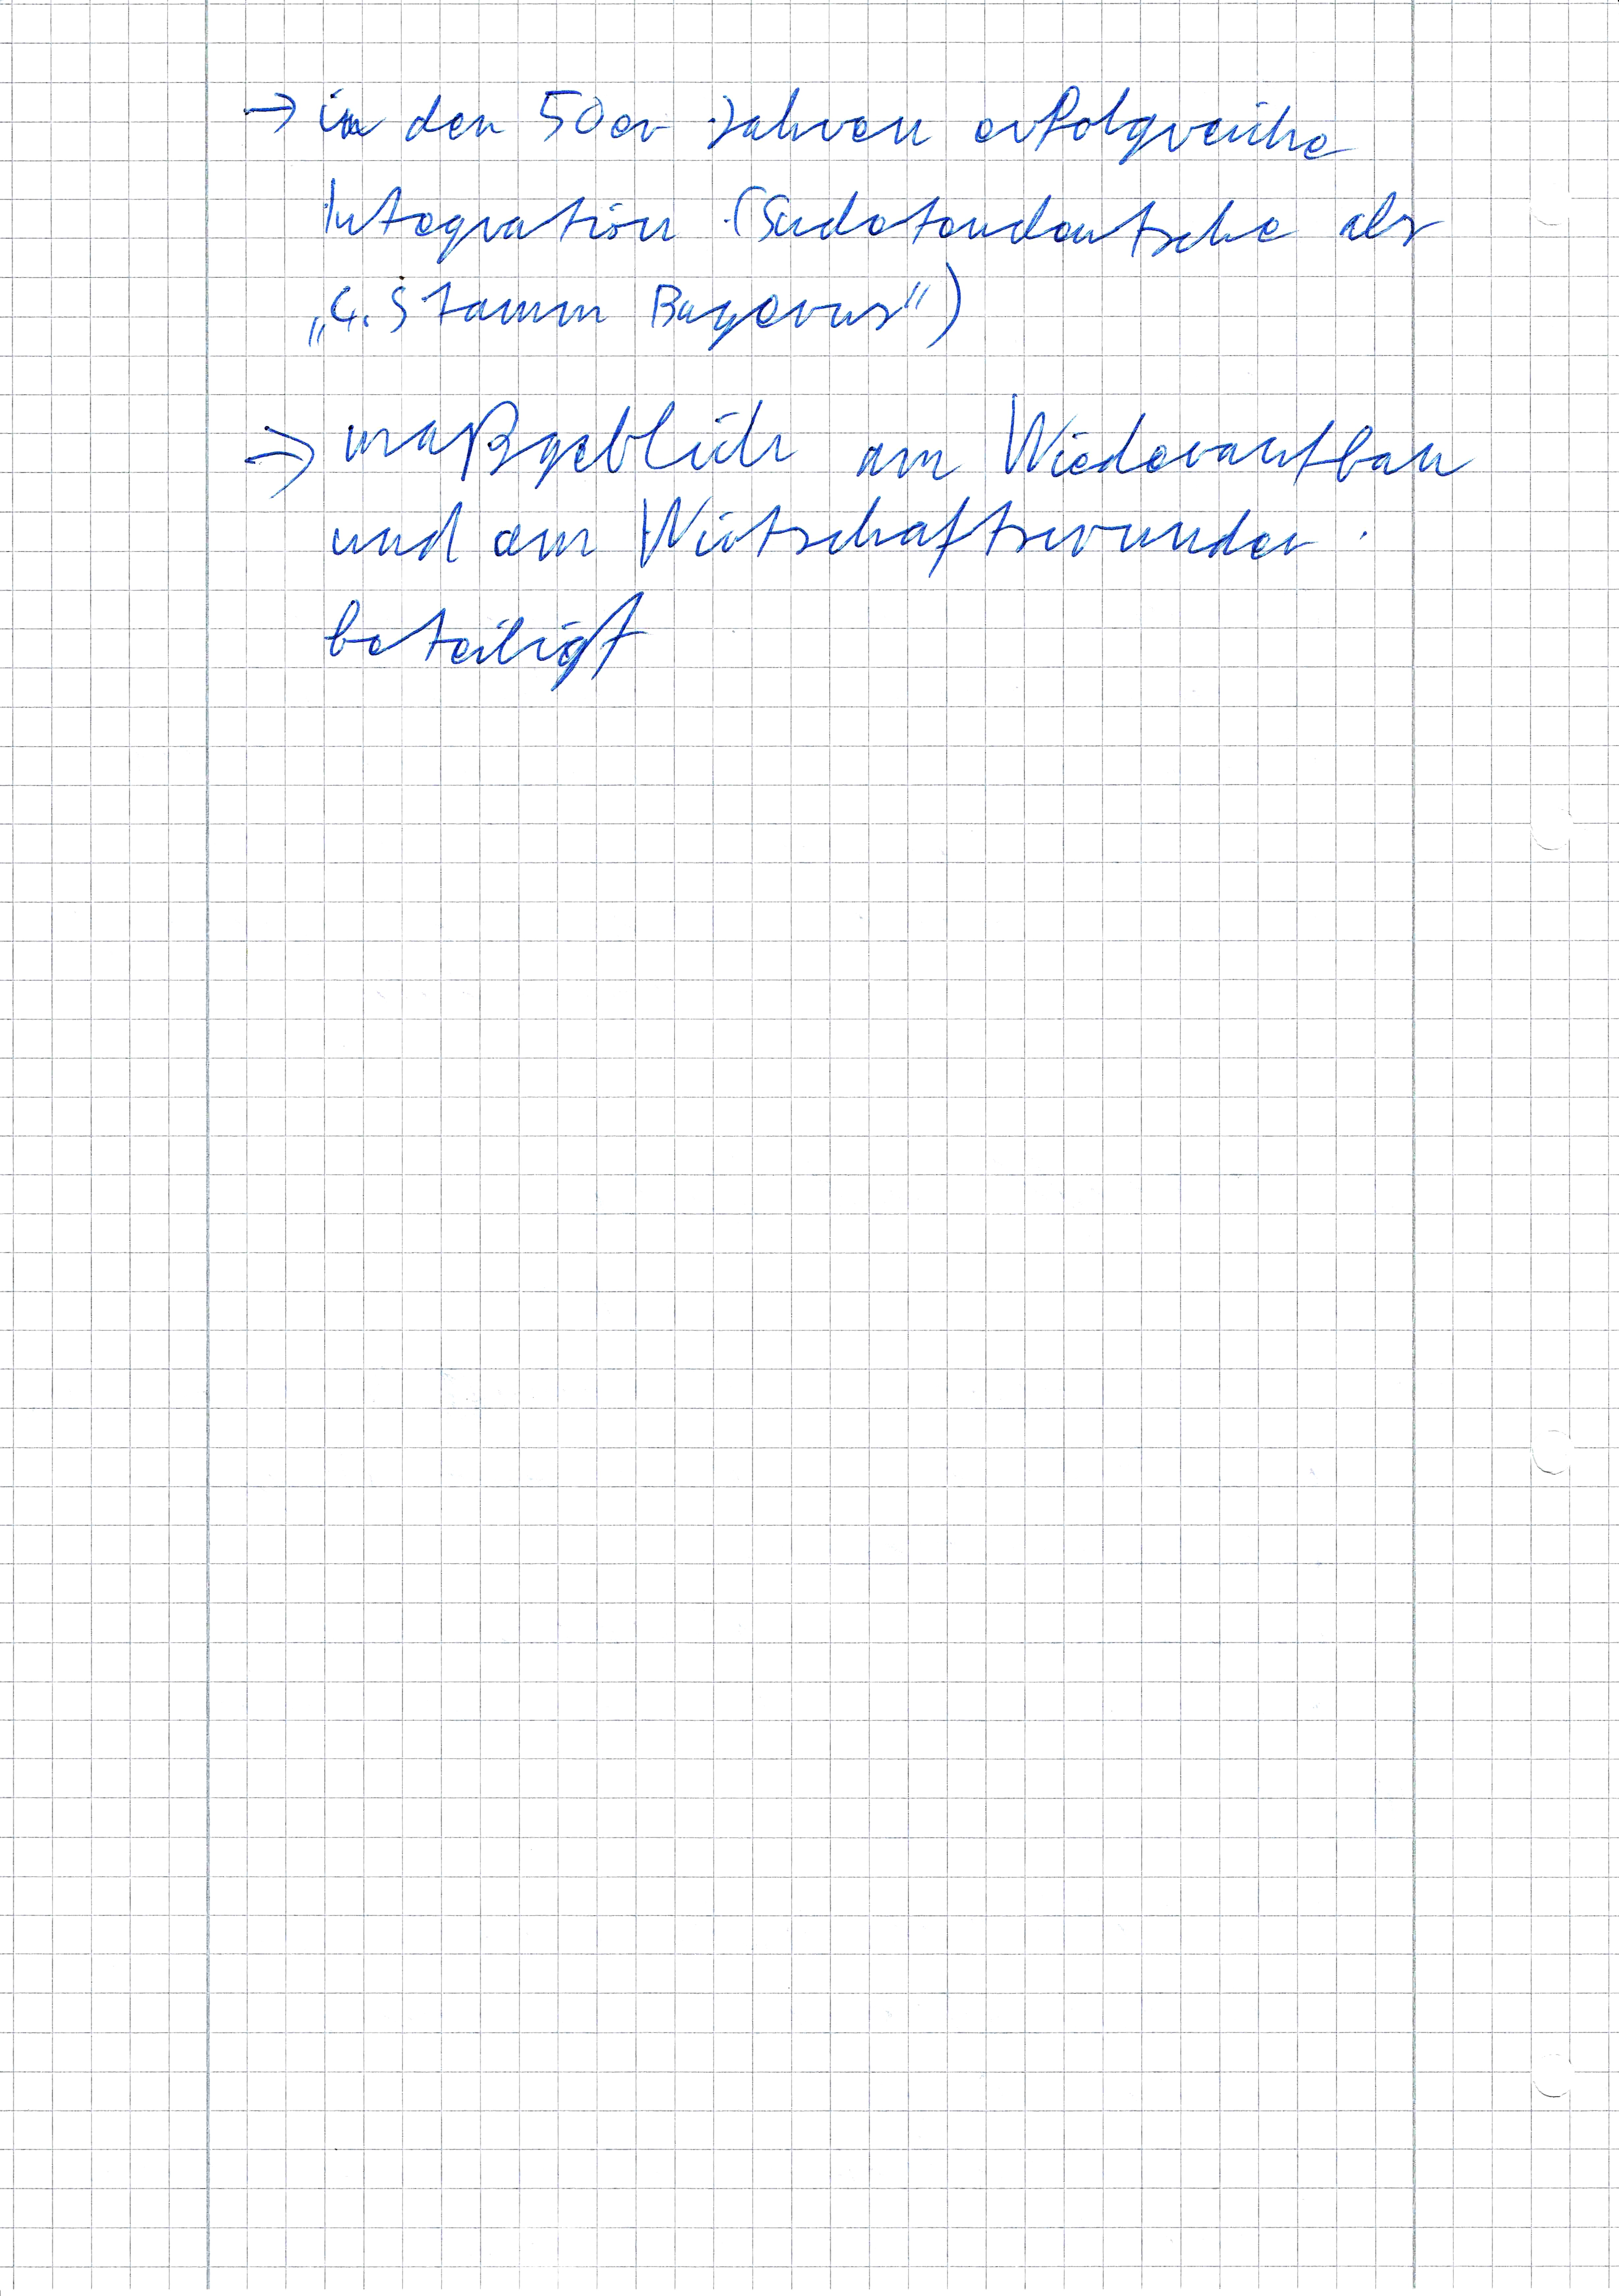 → in den 50er Jahren erfolgreiche
Integration (Sudetendeutsche als
„4. Stamm Bayerns")
⇒ maßgeblich am Wiederaufbau
und am Wirtschaftswunder
beteiligt